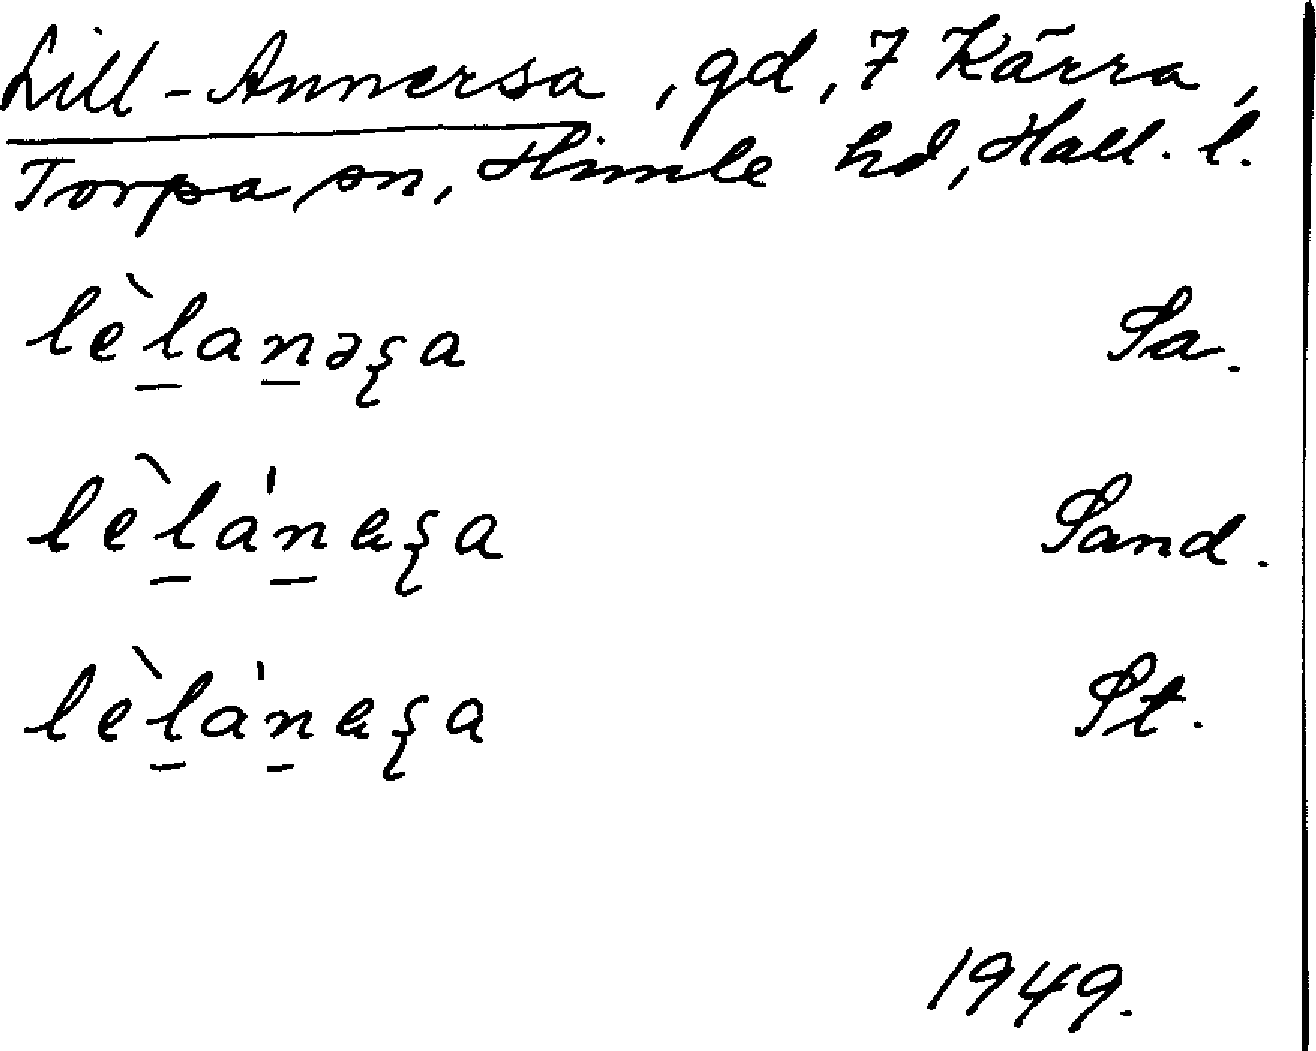 Lill-Annersa, gd, 7 Kärra,
Torpa sn, Himle hd, Hall. l.
lèḻaṉəʂa Sa.
lèḻa'ṉɐʂa Sand.
lèḻa'ṉɐʂa St.
1949.